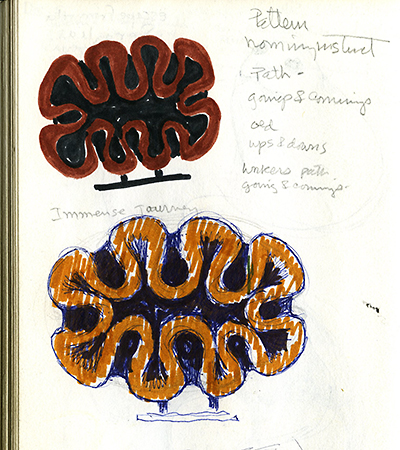 Pattern
Path -
goings & comings
old
ups & downs
workers path
going & comings.
Immense Journey